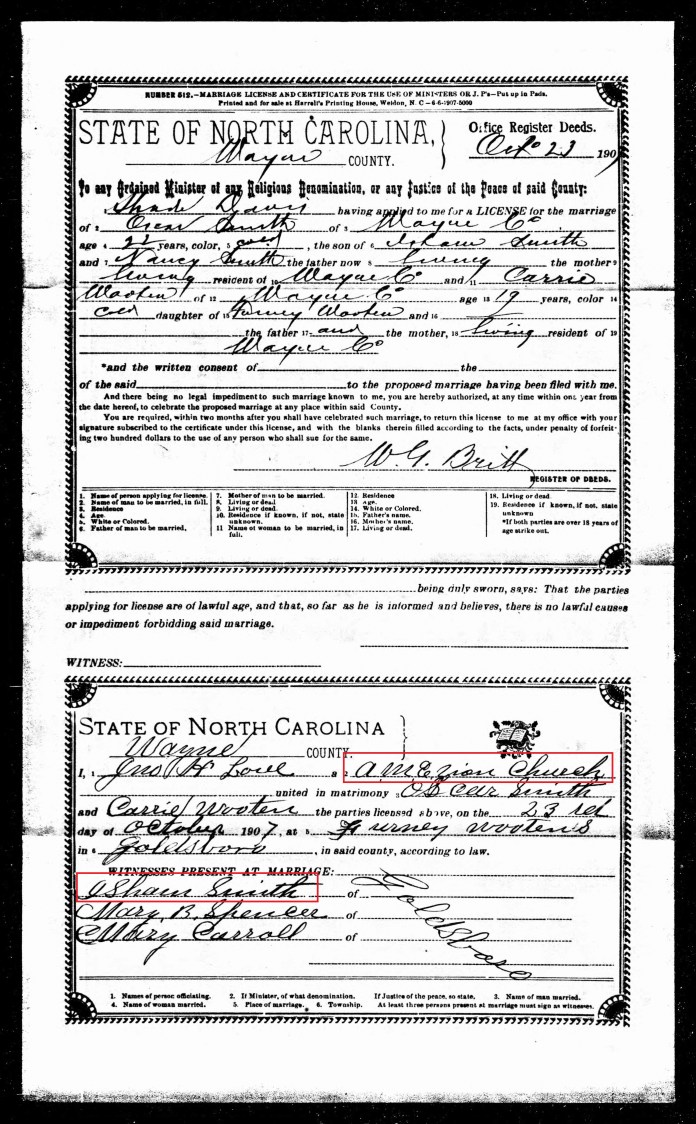 NUMBER 612.—MARRIAGE LICENSE AND CERTIFICATE FOR THE USE OF MINISTERS OR J. P's—Put up in Pads.
Printed and for sale at Harrell's Printing House, Weldon, N. C—6-6-1907-5000
STATE OF NORTH CAROLINA,} Office Register Deeds.
Wayne COUNTY. Oct 23 1907
To any Ordained Minister of any Religious Denomination, or any Justice of the Peace of said County:
1 Shade Davis having applied to me for a LICENSE for the marriage
of 2 Oscar Smith of 3 Wayne Co
age 4 years, color, 5 cold, the son of 6 Isham Smith
and 7 Nancy Smith the father now 8 living the mother 9
living resident of 10 Wayne Co and 11 Carrie
Wooten of 12 Wayne Co age 13 19 years, color 14
cold daughter of 15 Furney Wooten and 16
the father 17 and the mother, 18 living resident of 19
Wayne Co
*and the written consent of the
of the said to the proposed marriage having been filed with me.
And there being no legal impediment to such marriage known to me, you are hereby authorized, at any time within one year from
the date hereof, to celebrate the proposed marriage at any place within said County.
You are required, within two months after you shall have celebrated such marriage, to return this license to me at my office with your
signature subscribed to the certificate under this license, and with the blanks therein filled according to the facts, under penalty of forfeit-
ing two hundred dollars to the use of any person who shall sue for the same.
W. G. Britt
REGISTER OF DEEDS.
1. Name of person applying for license.
2. Name of man to be married, in full.
3. Residence
4. Age.
5. White or Colored.
6. Father of man to be married.
7. Mother of man to be married.
8. Living or dead.
9. Living or dead.
10. Residence if known, if not, state
unknown.
11 Name of woman to be married, in
full.
12. Residence
13 Age.
14. White or Colored.
15. Father's name.
16. Mother's name.
17. Living or dead.
18. Living or dead
19. Residence if known, if not, state
unknown
*If both parties are over 18 years of
age strike out.
being duly sworn, says: That the parties
applying for license are of lawful age, and that, so far as he is informed and believes, there is no lawful causes
or impediment forbidding said marriage.
WITNESS:
STATE OF NORTH CAROLINA }
Wayne COUNTY.
I, 1 Jno H Love a 2 A M E Zion Church
united in matrimony 3 OS Car Smith
and Carrie Wooten the parties licensed above, on the 23 rd
day of October 1907, at 5 Furney Wooten's
in 6 Goldsboro, in said county, according to law.
WITNESSES PRESENT AT MARRIAGE:
Isham Smith of Goldsboro
Mary B. Spencer of
Mary Carroll of
1. Names of person officiating. 2. If Minister, of what denomination. If Justice of the peace, so state. 3. Name of man married.
4. Name of woman married. 5. Place of marriage. 6. Township. At least three persons present at marriage must sign as witnesses.